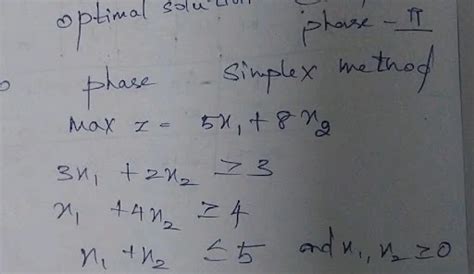 optimal solution
phase - II
phase simplex method
Max z = 5x₁ + 8x₂
3x₁ + 2x₂ ≥ 3
x₁ + 4x₂ ≥ 4
x₁ + x₂ ≤ 5 and x₁, x₂ ≥ 0